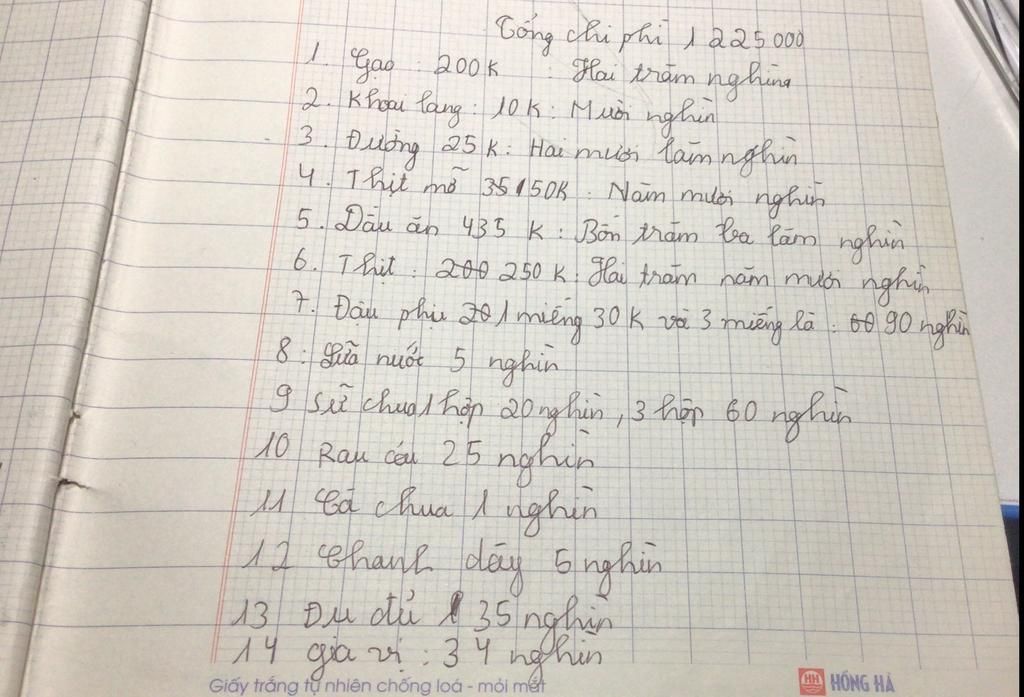 Tổng chi phí 1 225 000
1. Gạo : 200K : Hai trăm nghìn
2. Khoai lang : 10K : Mười nghìn
3. Đường 25K : Hai mươi lăm nghìn
4. Thịt mỡ 35 150K : Năm mươi nghìn
5. Dầu ăn 435 K : Bốn trăm ba lăm nghìn
6. Thịt : 200 250K : Hai trăm năm mươi nghìn
7. Đậu phụ 20 1 miếng 30K và 3 miếng là : 60 90 nghìn
8 : Sữa nước 5 nghìn
9 Sữ chua 1 hộp 20 nghìn, 3 hộp 60 nghìn
10 Rau cải 25 nghìn
11 Cà chua 1 nghìn
12 Chanh dây 5 nghìn
13 Đu đủ 35 nghìn
14 gia vị : 34 nghìn
Giấy trắng tự nhiên chống loá - mỏi mắt HH HỒNG HÀ